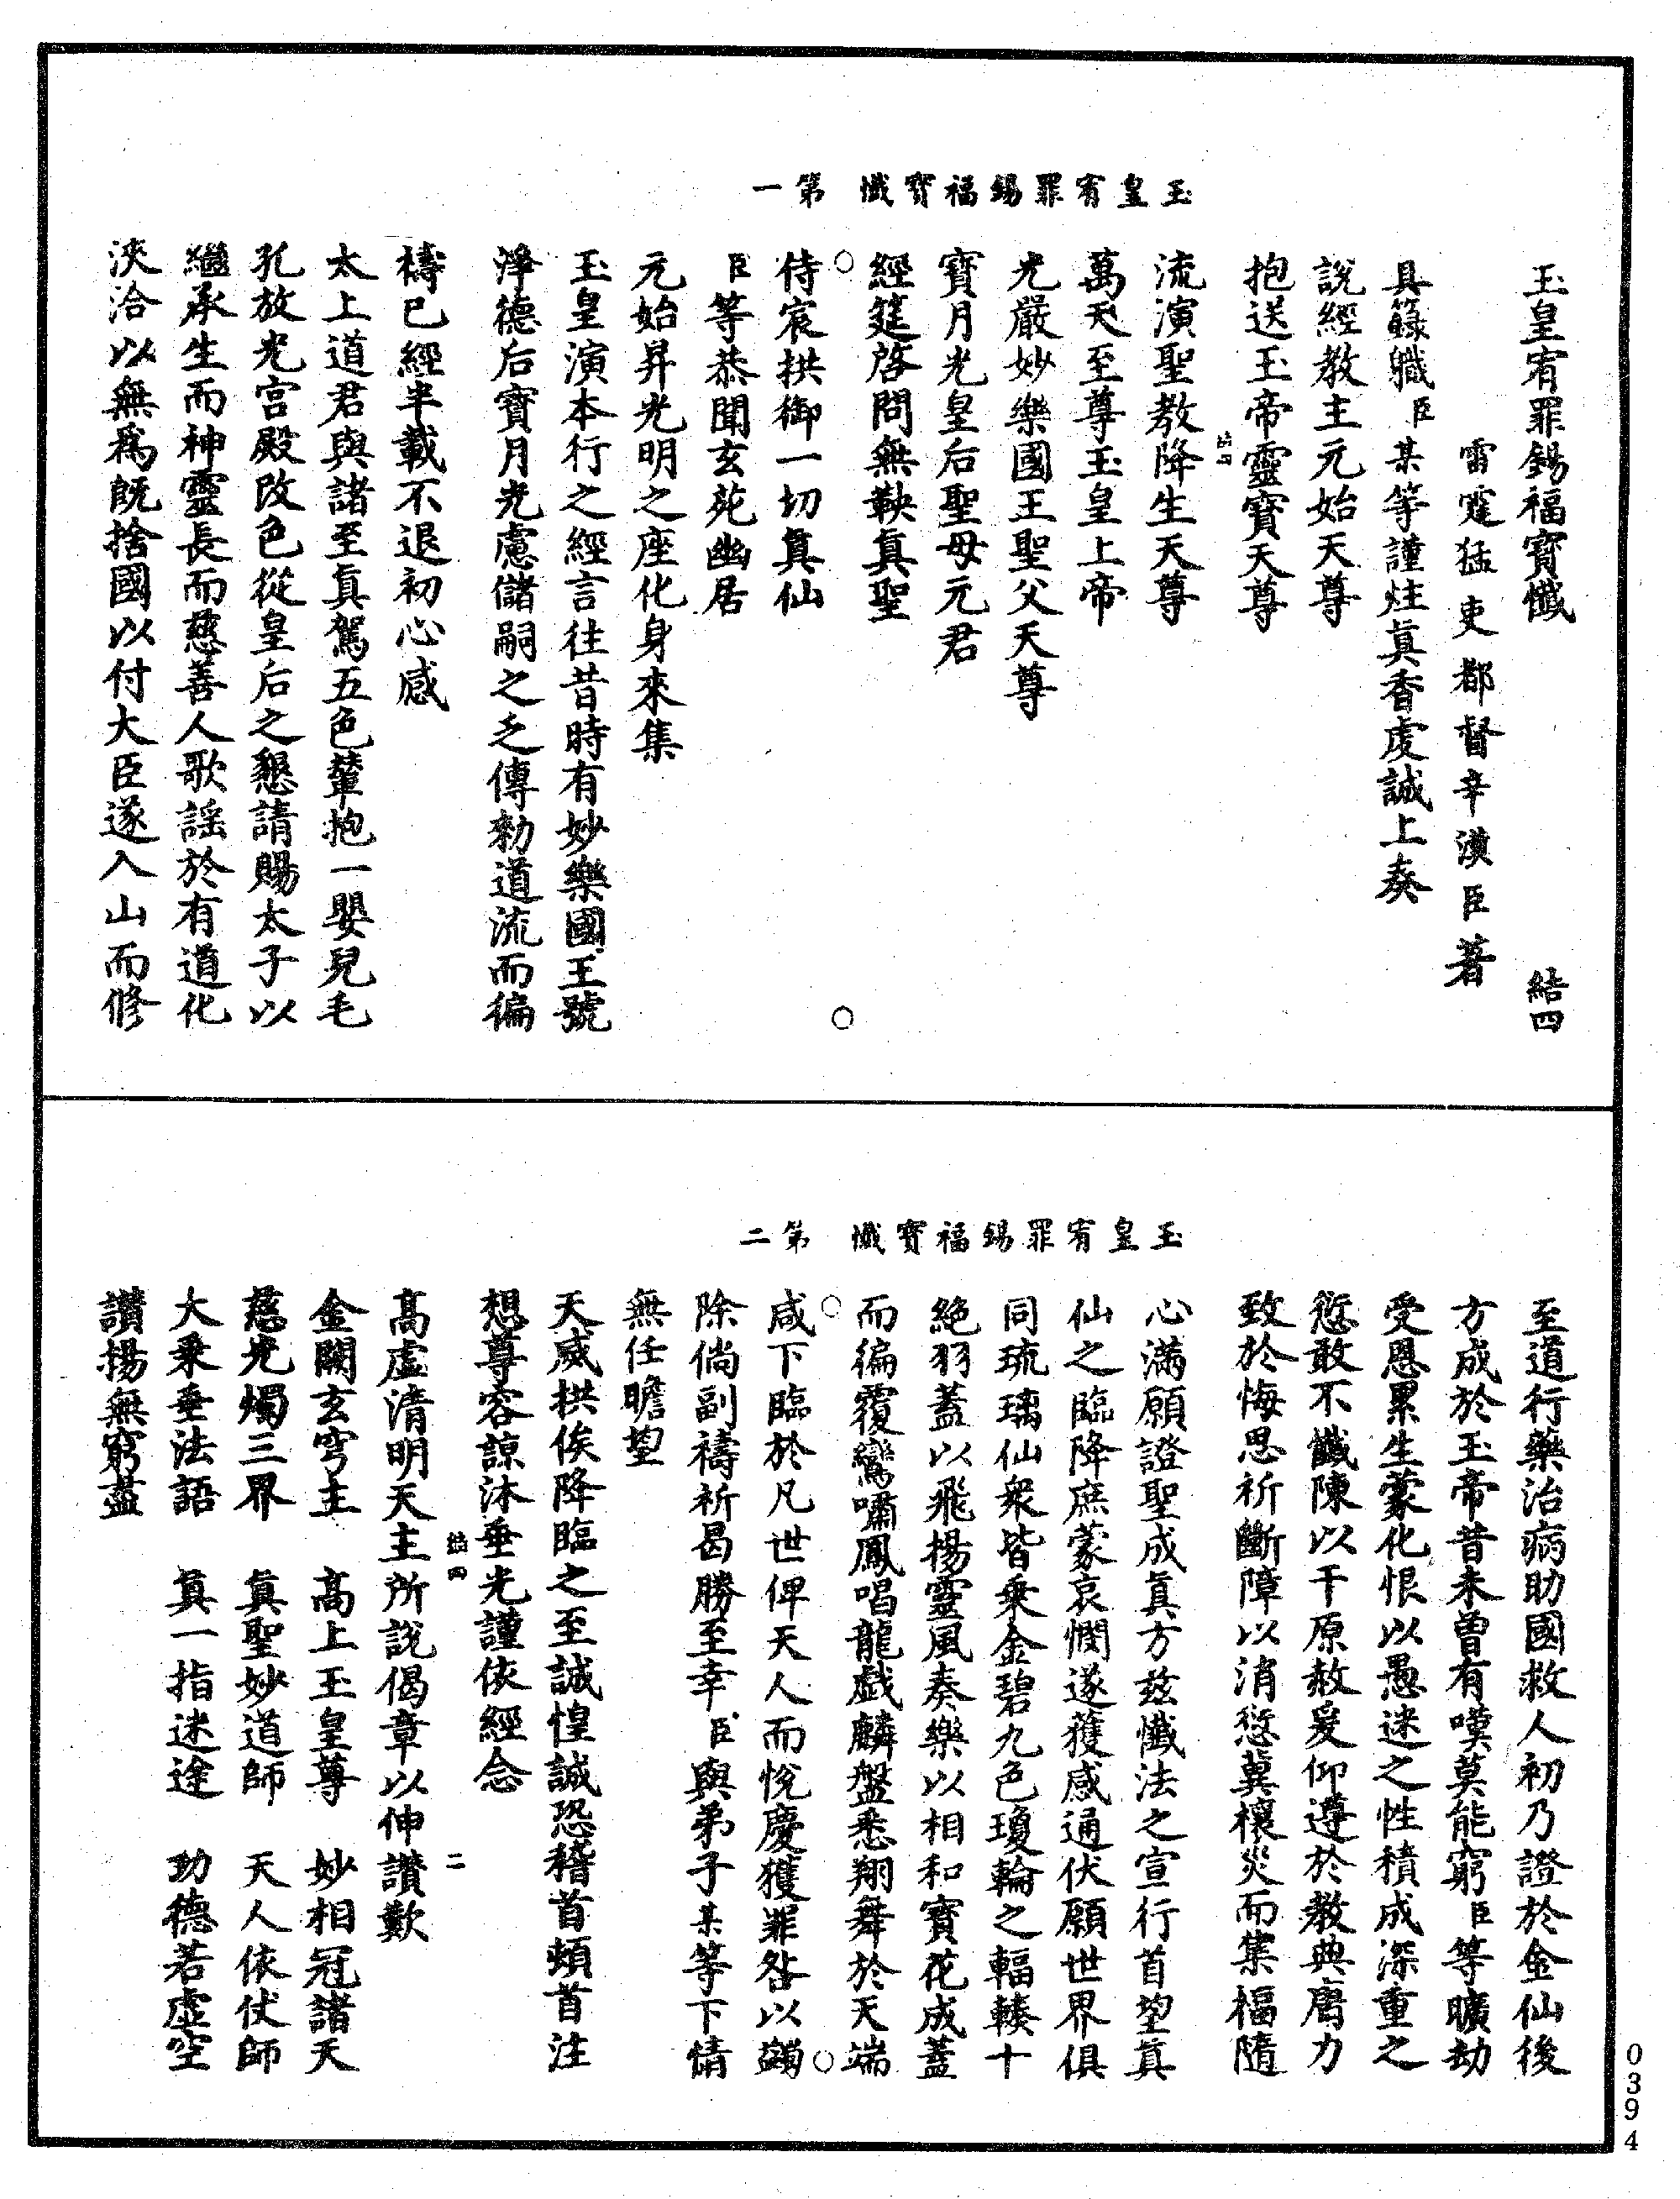 玉皇宥罪錫福寶懺　第一
玉皇宥罪錫福寶懺　結四
雷霆猛吏都督辛漢臣著
具籙職臣某等謹炷真香虔誠上奏
說經教主元始天尊
抱送玉帝靈寶天尊
結四
流演聖教降生天尊
萬天至尊玉皇上帝
光嚴妙樂國王聖父天尊
寶月光皇后聖母元君
經筵啓問無鞅真聖
侍宸拱御一切真仙
臣等恭聞玄苑幽居
元始昇光明之座化身來集
玉皇演本行之經言往昔時有妙樂國王號
淨德后寶月光慮儲嗣之乏傳勑道流而徧
禱已經半載不退初心感
太上道君與諸至真駕五色輦抱一嬰兒毛
孔放光宮殿改色從皇后之懇請賜太子以
繼承生而神靈長而慈善人歌謠於有道化
浹洽以無爲旣捨國以付大臣遂入山而修
玉皇宥罪錫福寶懺　第二
至道行藥治病助國救人初乃證於金仙後
方成於玉帝昔未曾有嘆莫能窮臣等曠劫
受恩累生蒙化恨以愚迷之性積成深重之
愆敢不懺陳以干原赦爰仰遵於教典庸力
致於悔思祈斷障以消愆冀禳災而集福隨
心滿願證聖成真方茲懺法之宣行首望真
仙之臨降庶蒙哀憫遂獲感通伏願世界俱
同琉璃仙衆皆乘金碧九色瓊輪之輻輳十
絕羽蓋以飛揚靈風奏樂以相和寶花成蓋
而徧覆鸞嘯鳳唱龍戲麟盤悉翔舞於天端
咸下臨於凡世俾天人而悅慶獲罪咎以蠲
除倘副禱祈曷勝至幸臣與弟子某等下情
無任瞻望
天威拱俟降臨之至誠惶誠恐稽首頓首注
想尊容諒沐垂光謹依經念
結四　二
高虛清明天主所說偈章以伸讚歎
金闕玄穹主　高上玉皇尊　妙相冠諸天
慈光燭三界　真聖妙道師　天人依仗師
大乘垂法語　真一指迷途　功德若虛空
讚揚無窮盡
0394